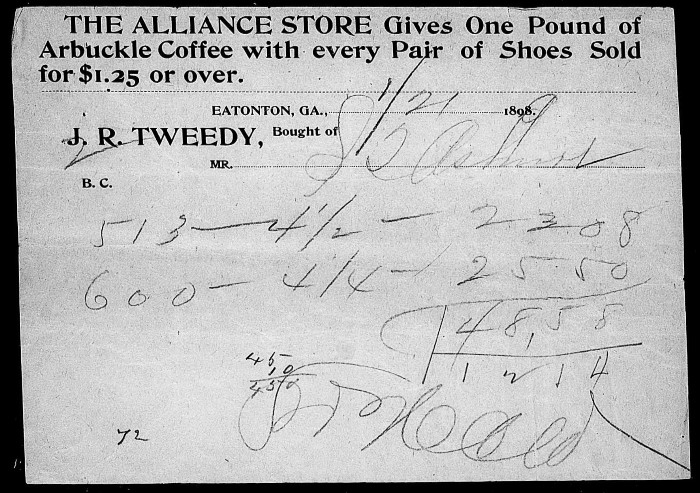 THE ALLIANCE STORE Gives One Pound of
Arbuckle Coffee with every Pair of Shoes Sold
for $1.25 or over.
EATONTON, GA., 1/21 1898.
J. R. TWEEDY, Bought of
MR.
B. C.
513 — 4 1/2 — 2308
600 — 4 1/4 — 2550
48,58
1214
45
10
450
72